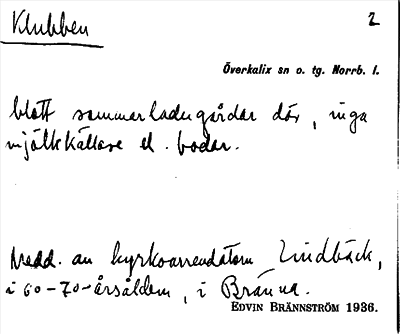 Klubben 2
Överkalix sn o. tg. Norrb. l.
blott sommarladugårdar där, inga
mjölkkällare el. bodar.
Medd. av kyrkoarrendatorn Lindbäck,
i 60-70-årsåldern, i Bränna.
EDVIN BRÄNNSTRÖM 1936.